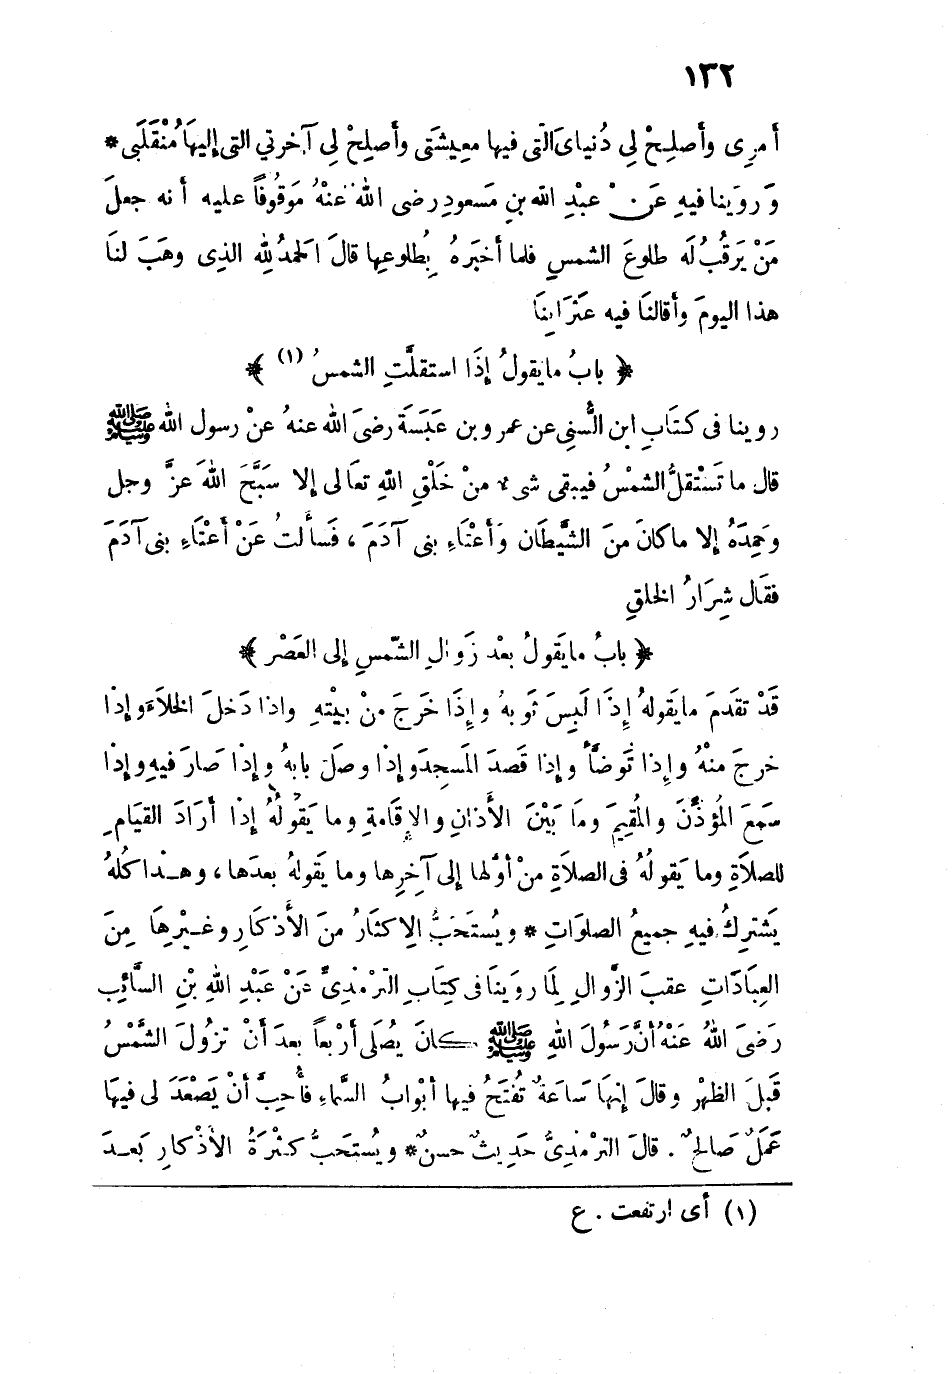 ١٣٢
أمرِى وأَصلِحْ لِى دُنياىَ الَّتى فيها معِيشَتى وأَصلِحْ لِى آخرتي التى إليهَا مُنْقَلَبى *
وَرويْنا فيهِ عَن عبْدِ الله بنِ مَسعودٍ رضى اللهُ عَنْهُ مَوْقُوفاً عليه أنه جعلَ
مَنْ يَرقُبُ لَه طلوعَ الشمسِ فلما أخبَرهُ بِطلوعِها قالَ الحمدُ لِلهِ الذِى وهَبَ لنَا
هذا اليومَ وأَقالنَا فيه عَثَرَاتِنَا
﴿ بابُ ما يقولُ إذَا استقلَّتِ الشمسُ (١) ﴾
روينا فى كتَابِ ابن السُّنِى عن عمرو بن عَبَسَةَ رضىَ الله عنهُ عنْ رسول الله ﷺ
قال ما تَسْتقلُّ الشمْسُ فيبقى شىء منْ خَلْقِ اللهِ تعَالى إلا سَبَّحَ اللهَ عزَّ وجل
وحمِدَهُ إلا ما كانَ منَ الشَّيطَان وَأَعْتَاءِ بنى آدَمَ ، فَسأَلتُ عَنْ أَعْتَاءِ بنى آدَمَ
فقَال شِرَارُ الخلقِ
﴿ بابُ ما يَقولُ بعْد زَوالِ الشّمسِ إلى العَصْر ﴾
قَدْ تقدَمَ ما يَقولهُ إذَا لَبِسَ ثَوبهُ وإِذَا خَرجَ منْ بيْتهِ واذا دَخلَ الخلاَءَ وإذَا
خرجَ منهُ وإذا تَوضَّأَ وإذا قصَدَ المَسجِدَ وإذا وصلَ بابهُ وإذَا صَارَ فيهِ وإذَا
سَمعَ المُؤذِّنَ والمُقِيمَ ومَا بَيْنَ الأَذانِ والإقَامةِ وما يَقولُهُ إذا أَرَادَ القيَامِ
للصلاَةِ وما يَقولُهُ فى الصلاَةِ منْ أوَّلها إلى آخِرِها وما يقولهُ بعدَها ، وهـذا كلهُ
يَشتركُ فيهِ جميعُ الصلوَاتِ * ويُستَحَبُّ الإكثارُ منَ الأَذكَارِ وغـيْرِهَا مِنَ
العِبَادَاتِ عقبَ الزَّوالِ لِمَا روَينَا فى كِتَابِ الترْمذِىِّ عَنْ عَبْدِ اللهِ بْنِ السَّائِب
رَضىَ اللهُ عَنْهُ أنَّ رَسُولَ اللهِ ﷺ كانَ يصُلَى أَرْبعاً بعدَ أنْ تزُولَ الشَّمْسُ
قَبلَ الظهْرِ وقالَ إنهَا سَاعَةٌ تُفتَحُ فيها أبْوابُ السَّماءِ فأُحِبُّ أنْ يَصْعَدَ لى فيهَا
عَمَلٌ صَالحٌ . قالَ الترْمذِىُّ حَدِيثٌ حسنٌ * ويُستَحَبُّ كثرَةُ الأَذْكارِ بَعـدَ
(١) أى ارتفعت . ع